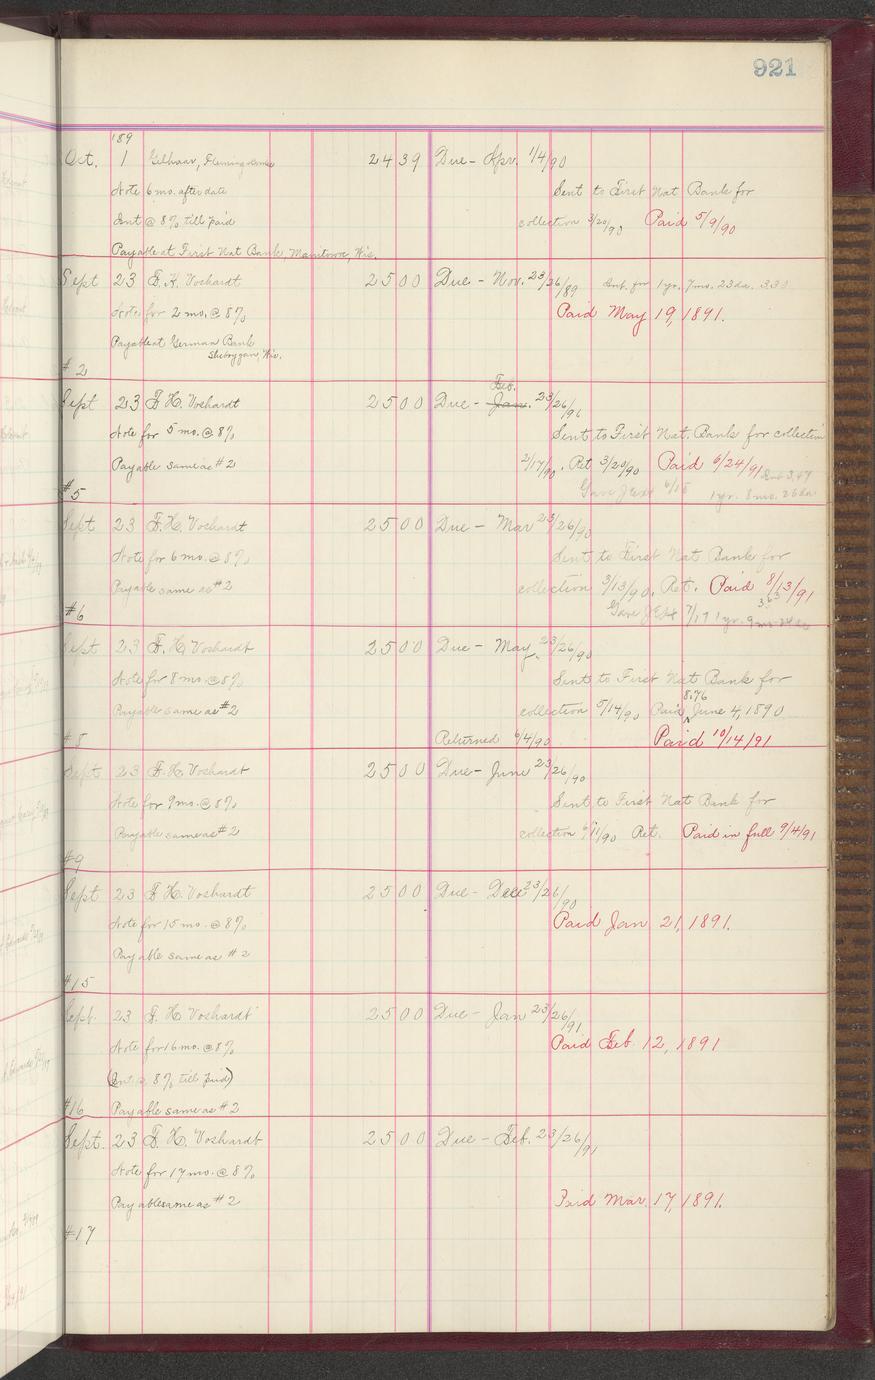 921
189
Oct. 1 Gelhaar, Fleming 2439 Due - Apr. 1/4/90
Note 6 mo. after date Sent to First Nat Bank for
Int @ 8% till paid collection 3/20/90 Paid 5/9/90
Payable at First Nat Bank, Manitowoc, Wis.
Sept 23 F. H. Voshardt 2500 Due - Nov. 23/26/89 Int. for 1 yr. 7 mo. 23 da. 3.30
Note for 2 mo. @ 8% Paid May 19, 1891.
Payable at German Bank
Sheboygan, Wis.
#2
Feb.
Sept 23 F. H. Voshardt 2500 Due - Jan. 23/26/90
Note for 5 mo. @ 8% Sent to First Nat. Bank for collection
Payable same as #2 2/17/90. Ret 3/20/90 Paid 6/24/91 Int 3.47
#5 Gave J Ext 6/15 1 yr. 8 mo. 26 da
Sept 23 F. H. Voshardt 2500 Due - Mar 23/26/90
Note for 6 mo. @ 8% Sent to First Nat Bank for
Payable same as #2 collection 3/13/90. Ret. Paid 8/13/91
3.63
#6 Gave J Ext 7/17 1 yr. 9 mo. 24 da
Sept 23 F. H. Voshardt 2500 Due - May 23/26/90
Note for 8 mo. @ 8% Sent to First Nat Bank for
8.76
Payable same as #2 collection 5/14/90 Paid ^ June 4, 1890
#8 Returned 6/4/90 Paid 10/14/91
Sept 23 F. H. Voshardt 2500 Due - June 23/26/90
Note for 9 mo. @ 8% Sent to First Nat Bank for
Payable same as #2 collection 6/11/90 Ret. Paid in full 9/4/91
#9
Sept 23 F. H. Voshardt 2500 Due - Dec 23/26/90
Note for 15 mo. @ 8% Paid Jan 21, 1891.
Payable same as #2
#15
Sept. 23 F. H. Voshardt 2500 Due - Jan 23/26/91
Note for 16 mo. @ 8% Paid Feb. 12, 1891
(Int @ 8% till paid)
#16 Payable same as #2
Sept. 23 F. H. Voshardt 2500 Due - Feb. 23/26/91
Note for 17 mo. @ 8%
Payable same as #2 Paid Mar. 17, 1891.
#17